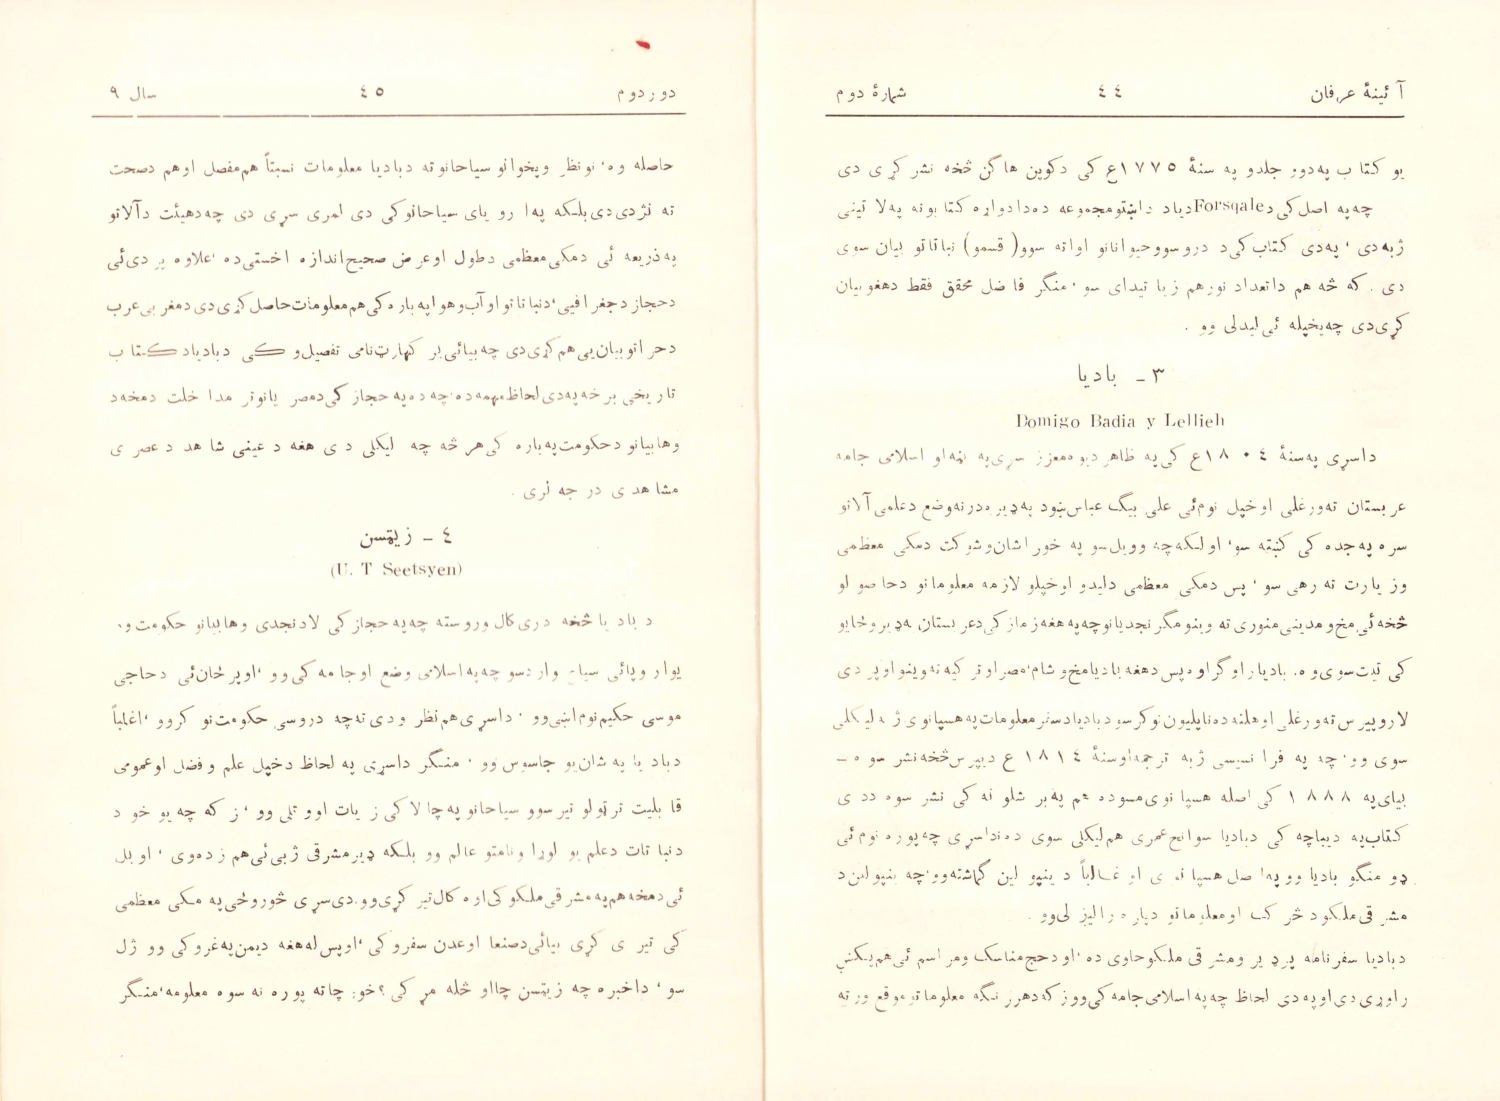 آئینهٔ عرفان ٤٤ شمارهٔ دوم
یو کتاب په دوو جلدو په سنهٔ ١٧٧٥ع کی دکوپن هاگن څخه نشر کړی دی
چه په اصل کی د Forsqale دیاد داښتو مجموعه ده دا دواړه کتابونه په لاتینی
ژبه دی ، په دی کتاب کی د دروسوو حیوانانو اواته سوو (قسمو) نباتاتو بیان سوی
دی . که څه هم داتعداد نورهم زیاتیدای سو ، منگر فاضل محقق فقط دهغو بیان
کړی دی چه یخپله ئی لیدلی وو .
٣ – بادیا
Domigo Badia y Lellieh
داسړی په سنهٔ ١٨٠٤ع کی په ظاهر دیوه معزز سړی په نهاو اسلامی جامه
عربستان ته ورغلی او خپل نوم ئی علی بیگ عباس ښود په ډیره درنه وضع دعلمی آلاتو
سره په جده کی کښته سو، اولکه چه ووبل سو په خورا شان وشوکت دمکی معظمی
وزیارت ته رهی سو ، پس دمکی معظمی دلیدو اوخپلو لازمه معلوماتو دحاصولو
څخه ئی مخ و مدینی منوری ته وینو مگر نجدیانو چه په هغه زماز کی دعربستان په ډیرو ځایو
کی تیت سوی وه . بادیا راوگراوه پس دهغه بادیا مخ و شام ، مصر او ترکیه ته وینو اوپر دی
لاروپیرس ته ورغلی اوهلته ده ناپلیون نوکر سو دبادیاد سفر معلومات په هسپانوی ژبه لیکلی
سوی وو ، چه په فرانسیسی ژبه ترجمه اوسنهٔ ١٨١٤ ع دپیرس څخه نشر سوه –
بیای په ١٨٨٨ کی اصله هسپانوی مسوده هم په برشلونه کی نشر سوه ددی
کتاب په دیباچه کی دبادیا سوانح عمری هم لیکلی سوی ده نداسړی چه پوره نوم ئی
دو منگو بادیا وو په اصل هسپانوی او غالباً د نیپولین گماشته وو ، چه نیپولین د
مشرقی ملکو د څرک او معلوماتو دپاره رالیږلی وو .
دبادیا سفرنامه پر ډیر ومشرقی ملکو حاوی ده ، اودحج مناسک ومراسم ئی هم پکښی
راوړی دی اوپه دی لحاظ چه په اسلامی جامه کی وو زکه دهر رنگه معلوماتو موقع ورته
دور دوم ٤٥ سال ٩
حاصله وه ، نونظر وپخوانو سیاحانوته دبادیا معلومات نسبتاً هم مفصل اوهم دصحت
ته نژدی دی بلکه په اروپای سیاحانوکی دی لمړی سړی دی چه دهیئت دآلاتو
په ذریعه ئی دمکی معظمی دطول اوعرض صحیح اندازه اخستی ده ، علاوه پر دی ئی
دحجاز دجغرافیی ، دنباتاتو اوآب وهوا په باره کی هم معلومات حاصل کړی دی دمغربی عرب
دحراتو بیان یی هم کړی دی چه بیائی بر کهارټ نامی تفصیل وکی دبادیاد کتاب
تاریخی برخه په دی لحاظ مهمه ده ، چه ده په حجاز کی دمصریانو تر مداخلت دمخه د
وهابیانو دحکومت په باره کی هر څه چه لیکلی دی هغه د عینی شاهد د عصری
مشاهدی درجه لری .
٤ – زیټسن
(U. T Seetsyen)
د بادیا څخه دری کال وروسته چه په حجاز کی لا دنجدی وهابیانو حکومت وو
یواروپائی سیاح وارد سو چه په اسلامی وضع اوجامه کی وو ، اوپر ځان ئی دحاجی
موسی حکیم نوم اښی وو ، داسړی هم نظر ودی ته چه دروسی حکومت نوکر وو ، اغلباً
دبادیا په شان یو جاسوس وو ، منگر داسړی په لحاظ دخپل علم وفضل اوعمومی
قابلیت تر ټولو تیر سوو سیاحانو په چالاکی زیات اووتلی وو ، زکه چه یو خو د
دنباتات دعلم یو لوړا ونامتو عالم وو بلکه ډیر مشرقی ژبی ئی هم زده وی ، اوبل
ئی دمخه هم په مشرقی ملکو کی اوه کال تیر کړی وو . دی سړی څوروځی په مکی معظمی
کی تیری کړی بیائی دصنعا اوعدن سفر وکی ، اوپس له هغه دیمن په غروکی وو ژل
سو ، داخبره چه زیټسن چا او څله مړ کی ؟ خور چاته پوره نه سوه معلومه ، منگر